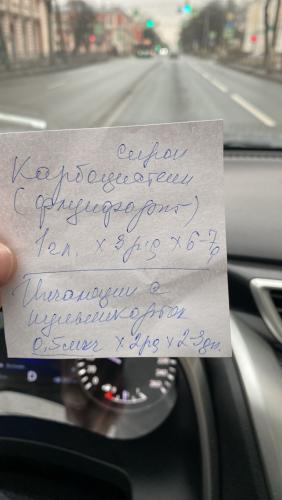 Сироп
Карбоцистеин
(флуифорт)
1 ч.л. х 3 р/д х 6-7 д
Ингаляции с
пульмикортом
0,5 мкг х 2 рд х 2-3 дн.
D